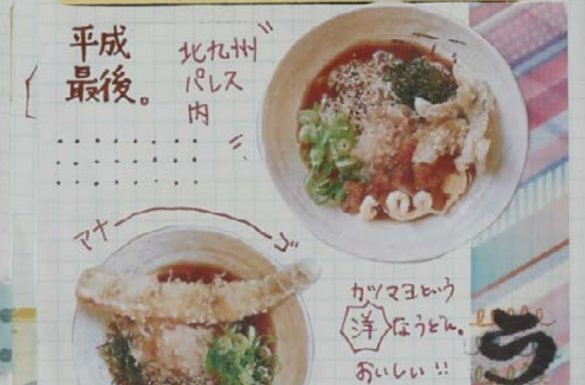 平成
最後。
北九州
パレス
内
アナゴ
カツマヨという
洋なうどん。
おいしい!!
う